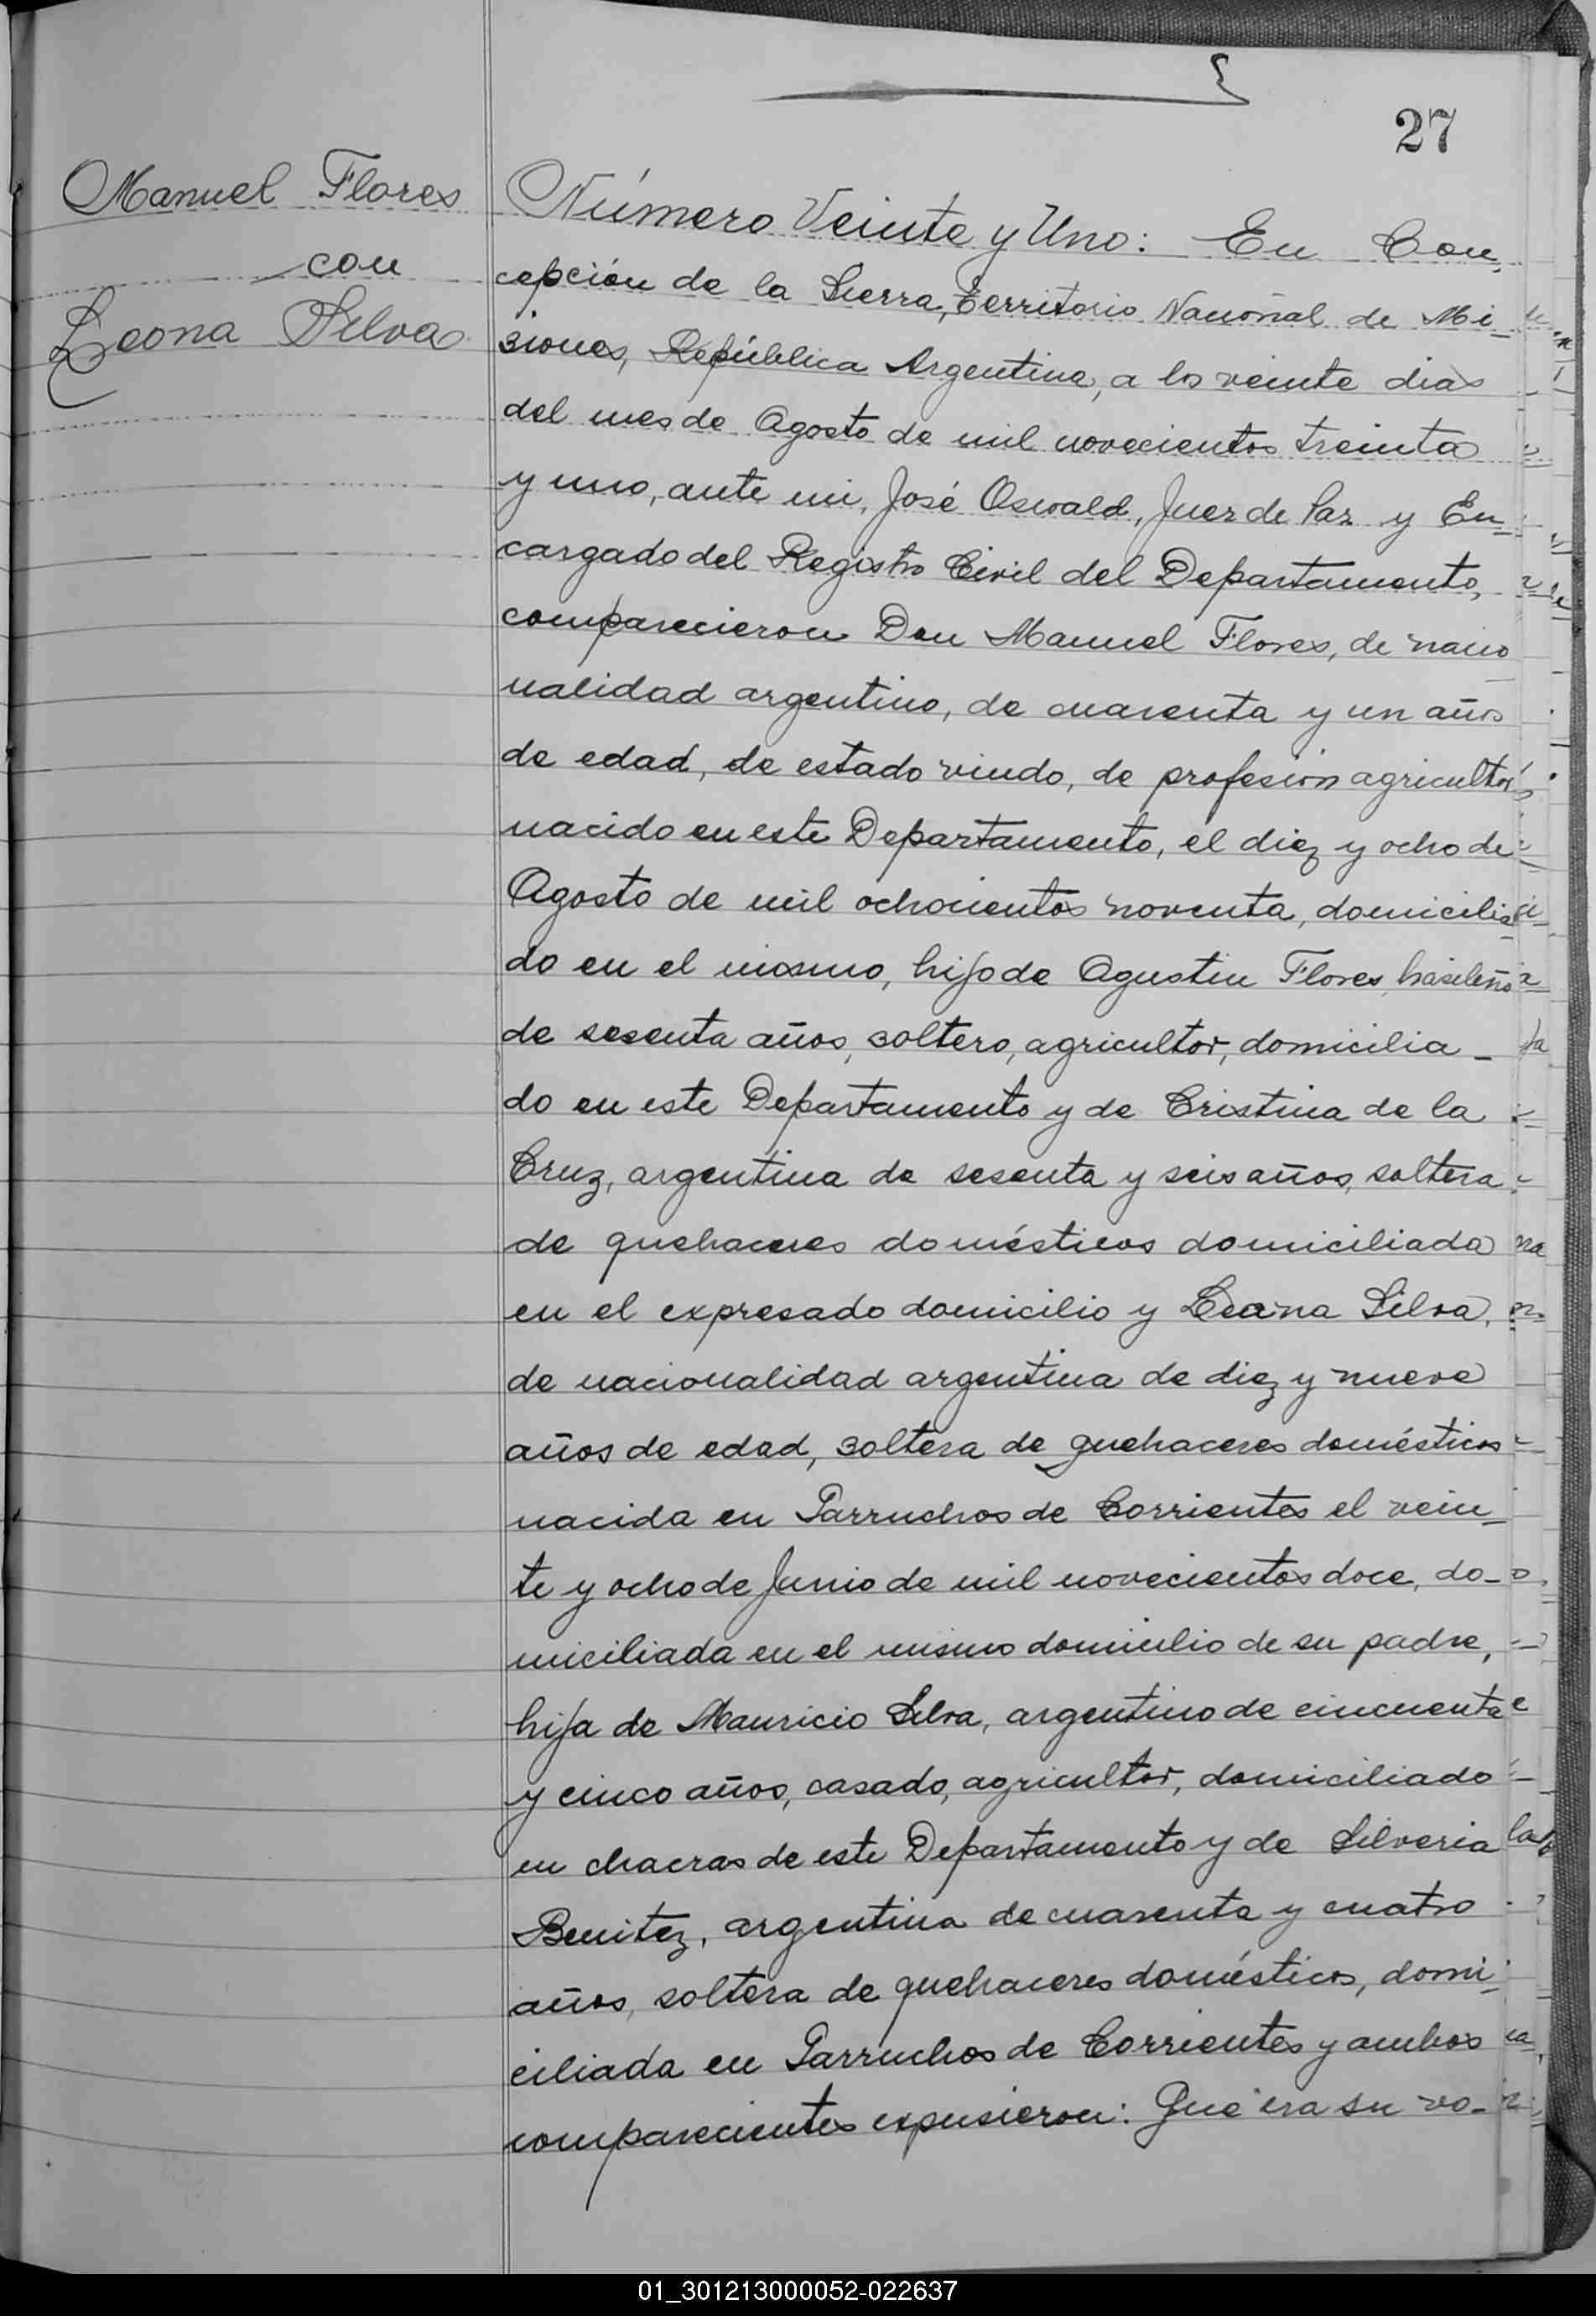 27
Manuel Flores
con
Leona Silva
Número Veinte y Uno: En Con-
cepción de la Sierra, Territorio Nacional de Mi-
siones, República Argentina, a los veinte dias
del mes de Agosto de mil novecientos treinta
y uno, ante mi, José Oswald, Juez de Paz y En-
cargado del Registro Civil del Departamento,
comparecieron Don Manuel Flores, de nacio
nalidad argentino, de cuarenta y un años
de edad, de estado viudo, de profesión agricultor,
nacido en este Departamento, el diez y ocho de
Agosto de mil ochocientos noventa, domicilia-
do en el mismo, hijo de Agustin Flores, brasileño
de sesenta años, soltero, agricultor, domicilia-
do en este Departamento y de Cristina de la
Cruz, argentina de sesenta y seis años, soltera
de quehaceres domésticos domiciliada
en el expresado domicilio y Leona Silva,
de nacionalidad argentina de diez y nueve
años de edad, soltera de quehaceres domésticos
nacida en Garruchos de Corrientes el vein-
te y ocho de Junio de mil novecientos doce, do-
miciliada en el mismo domicilio de su padre,
hija de Mauricio Silva, argentino de cincuenta
y cinco años, casado, agricultor, domiciliado
en chacras de este Departamento y de Silveria
Benitez, argentina de cuarenta y cuatro
años, soltera de quehaceres domésticos, domi-
ciliada en Garruchos de Corrientes y ambos
comparecientes expusieron: Que era su vo-
01_301213000052-022637